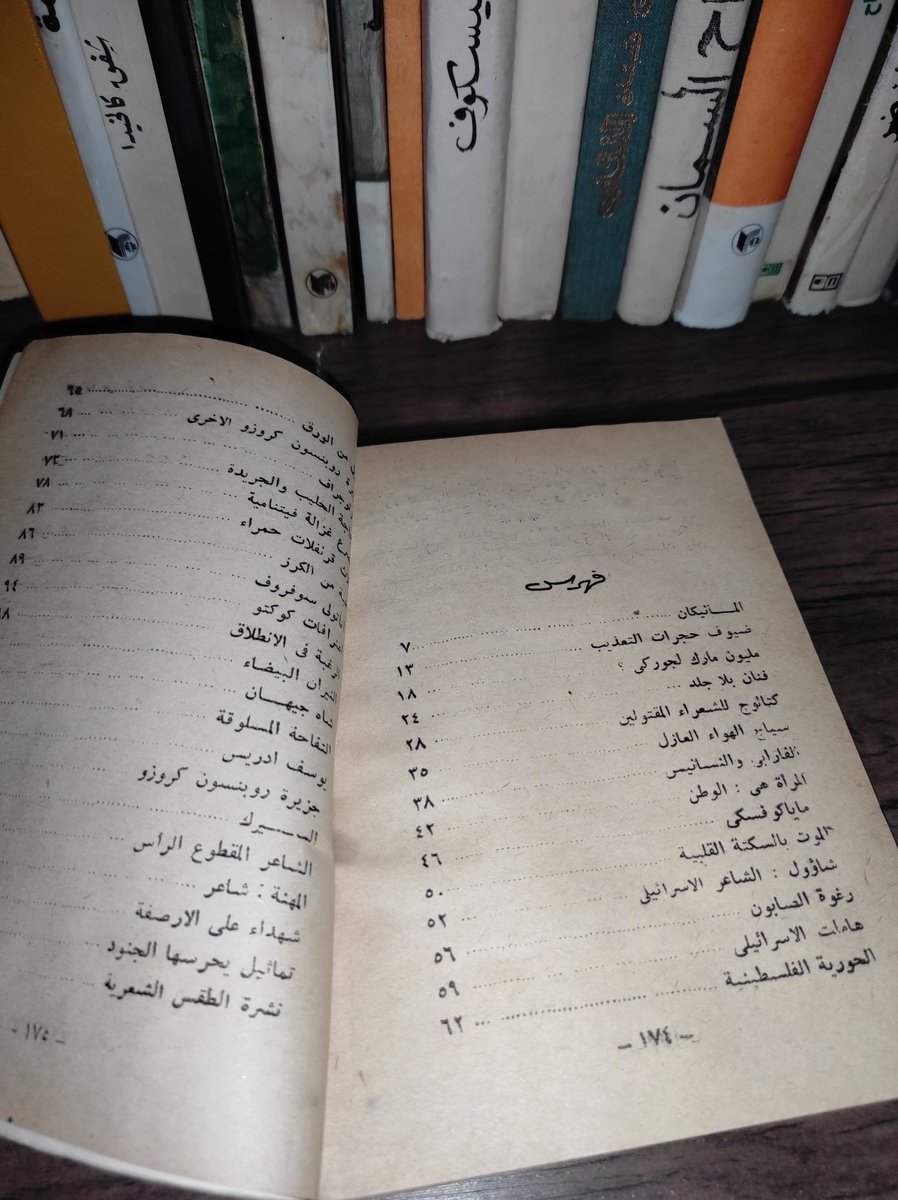 بيغي كالفيدا
يسكوف
السمان
فهرس
المانيكان ٧
ضيوف حجرات التعذيب ١٣
مليون مارك لجوركى ؟ ١٨
فنان بلا جلد ٢٤
كتالوج للشعراء المقتولين ٢٨
سياج الهواء العازل ٣٥
الفارابى والنسانيس ٣٨
المرأة هى : الوطن ٤٢
ماياكوفسكى ٤٦
الموت بالسكتة القلبية ٥٠
شاؤول : الشاعر الاسرائيلى ٥٢
رغوة الصابون ٥٦
هاملت الاسرائيلى ٥٩
الحورية الفلسطينية ٦٢
- ١٧٤ -
من الورق ٦٤
روبنسون كروزو الاخرى ٦٨
٧١
الحليب والجريدة ٧٣
غزالة فيتنامية ٧٨
قرنفلات حمراء ٨٣
من الكرز ٨٦
سوفروف ٨٩
كوكتو ٩٤
فى الانطلاق
الثيران البيضاء
شاه جيهان
التفاحة المسلوقة
يوسف ادريس
جزيرة روبنسون كروزو
السيرك
الشاعر المقطوع الرأس
المهنة : شاعر
شهداء على الارصفة
تماثيل يحرسها الجنود
نشرة الطقس الشعرية
- ١٧٥ -